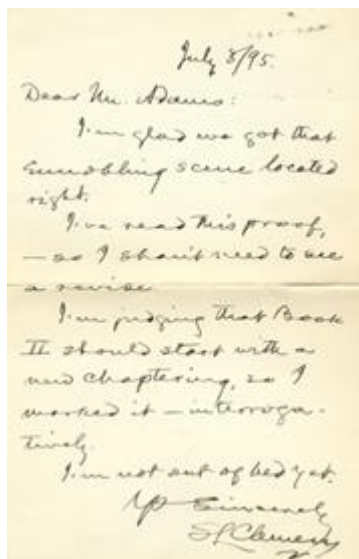 July 8/95.
Dear Mr. Adams:
I'm glad we got that
Ennobling scene located
right.
I've read this proof,
—so I shan't need to see
a revise
I'm judging that Book
II should start with a
new chaptering, so I
marked it—interroga-
tively.
I'm not out of bed yet.
Sincerely
SL Clemens